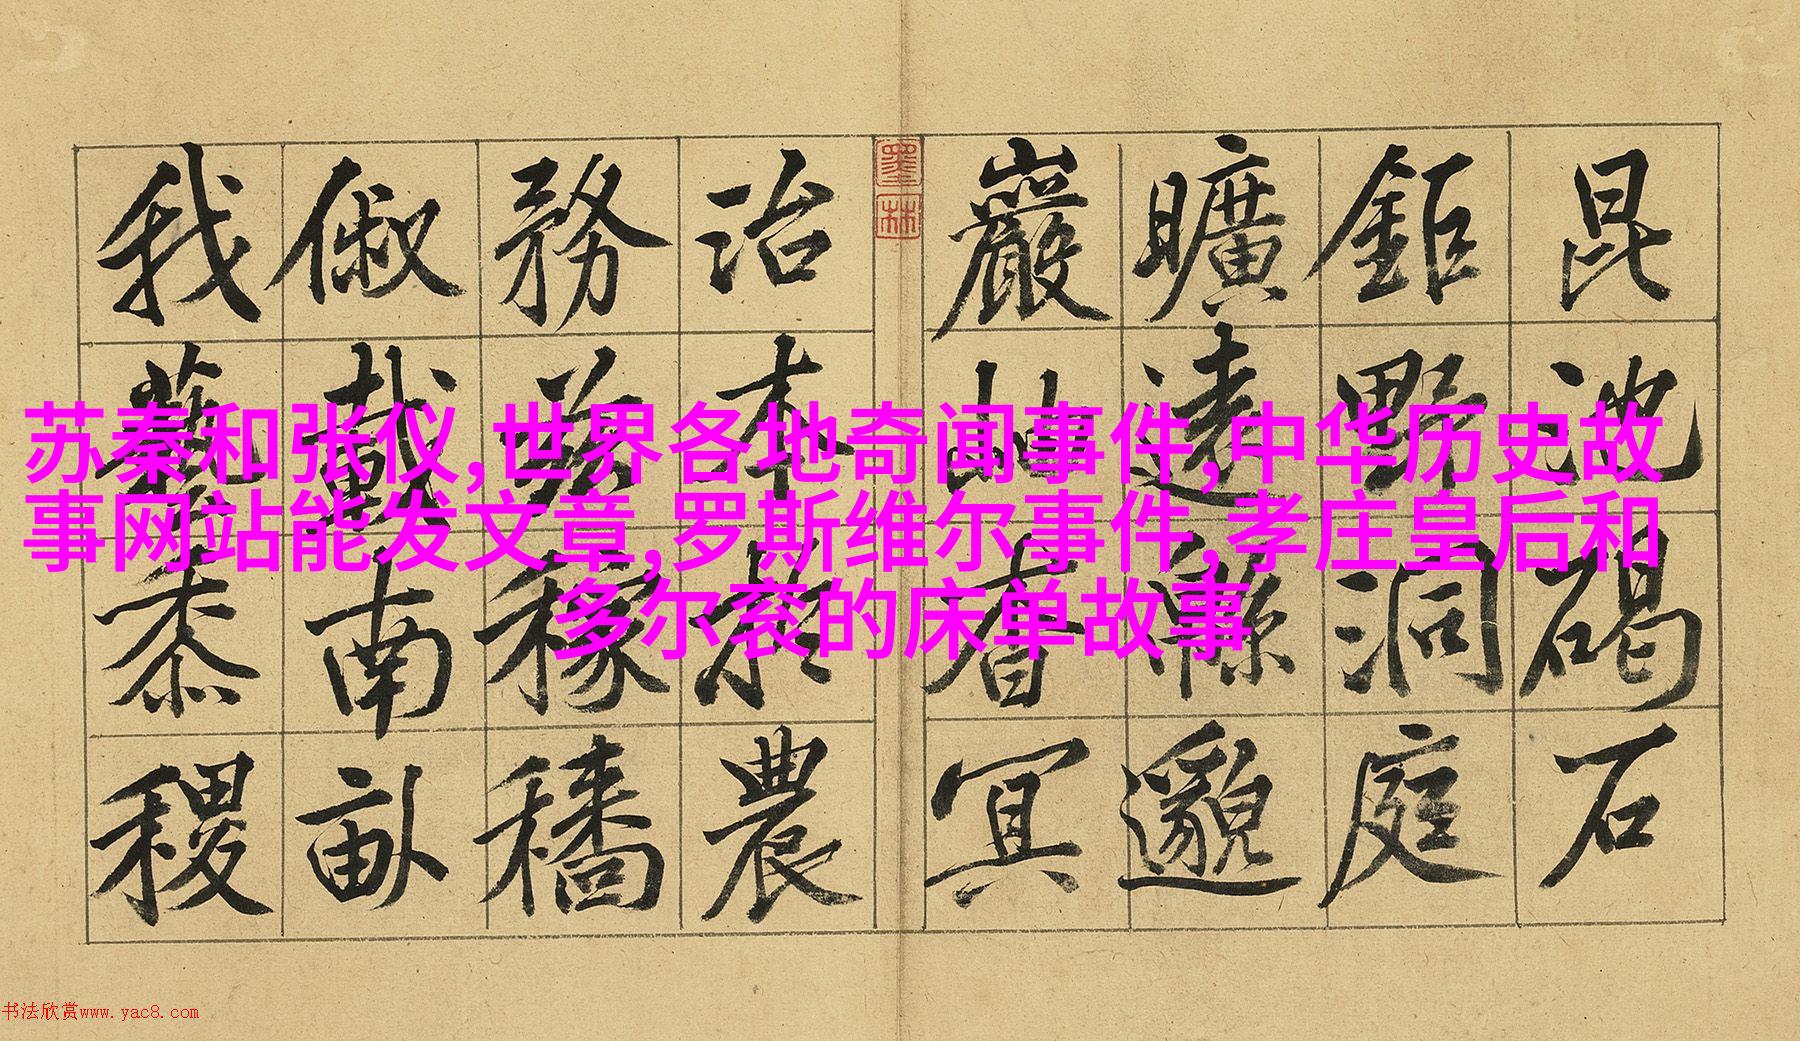 昆池碣石
鉅野洞庭
曠遠緜邈
巖岫杳冥
墨林
治本於農
務茲稼穡
俶載南畝
我藝黍稷
苏秦和张仪,世界各地奇闻事件,中华历史故
事网站能发文章,罗斯维尔事件,孝庄皇后和
多尔衮的床单故事
书法欣赏www.yac8.com